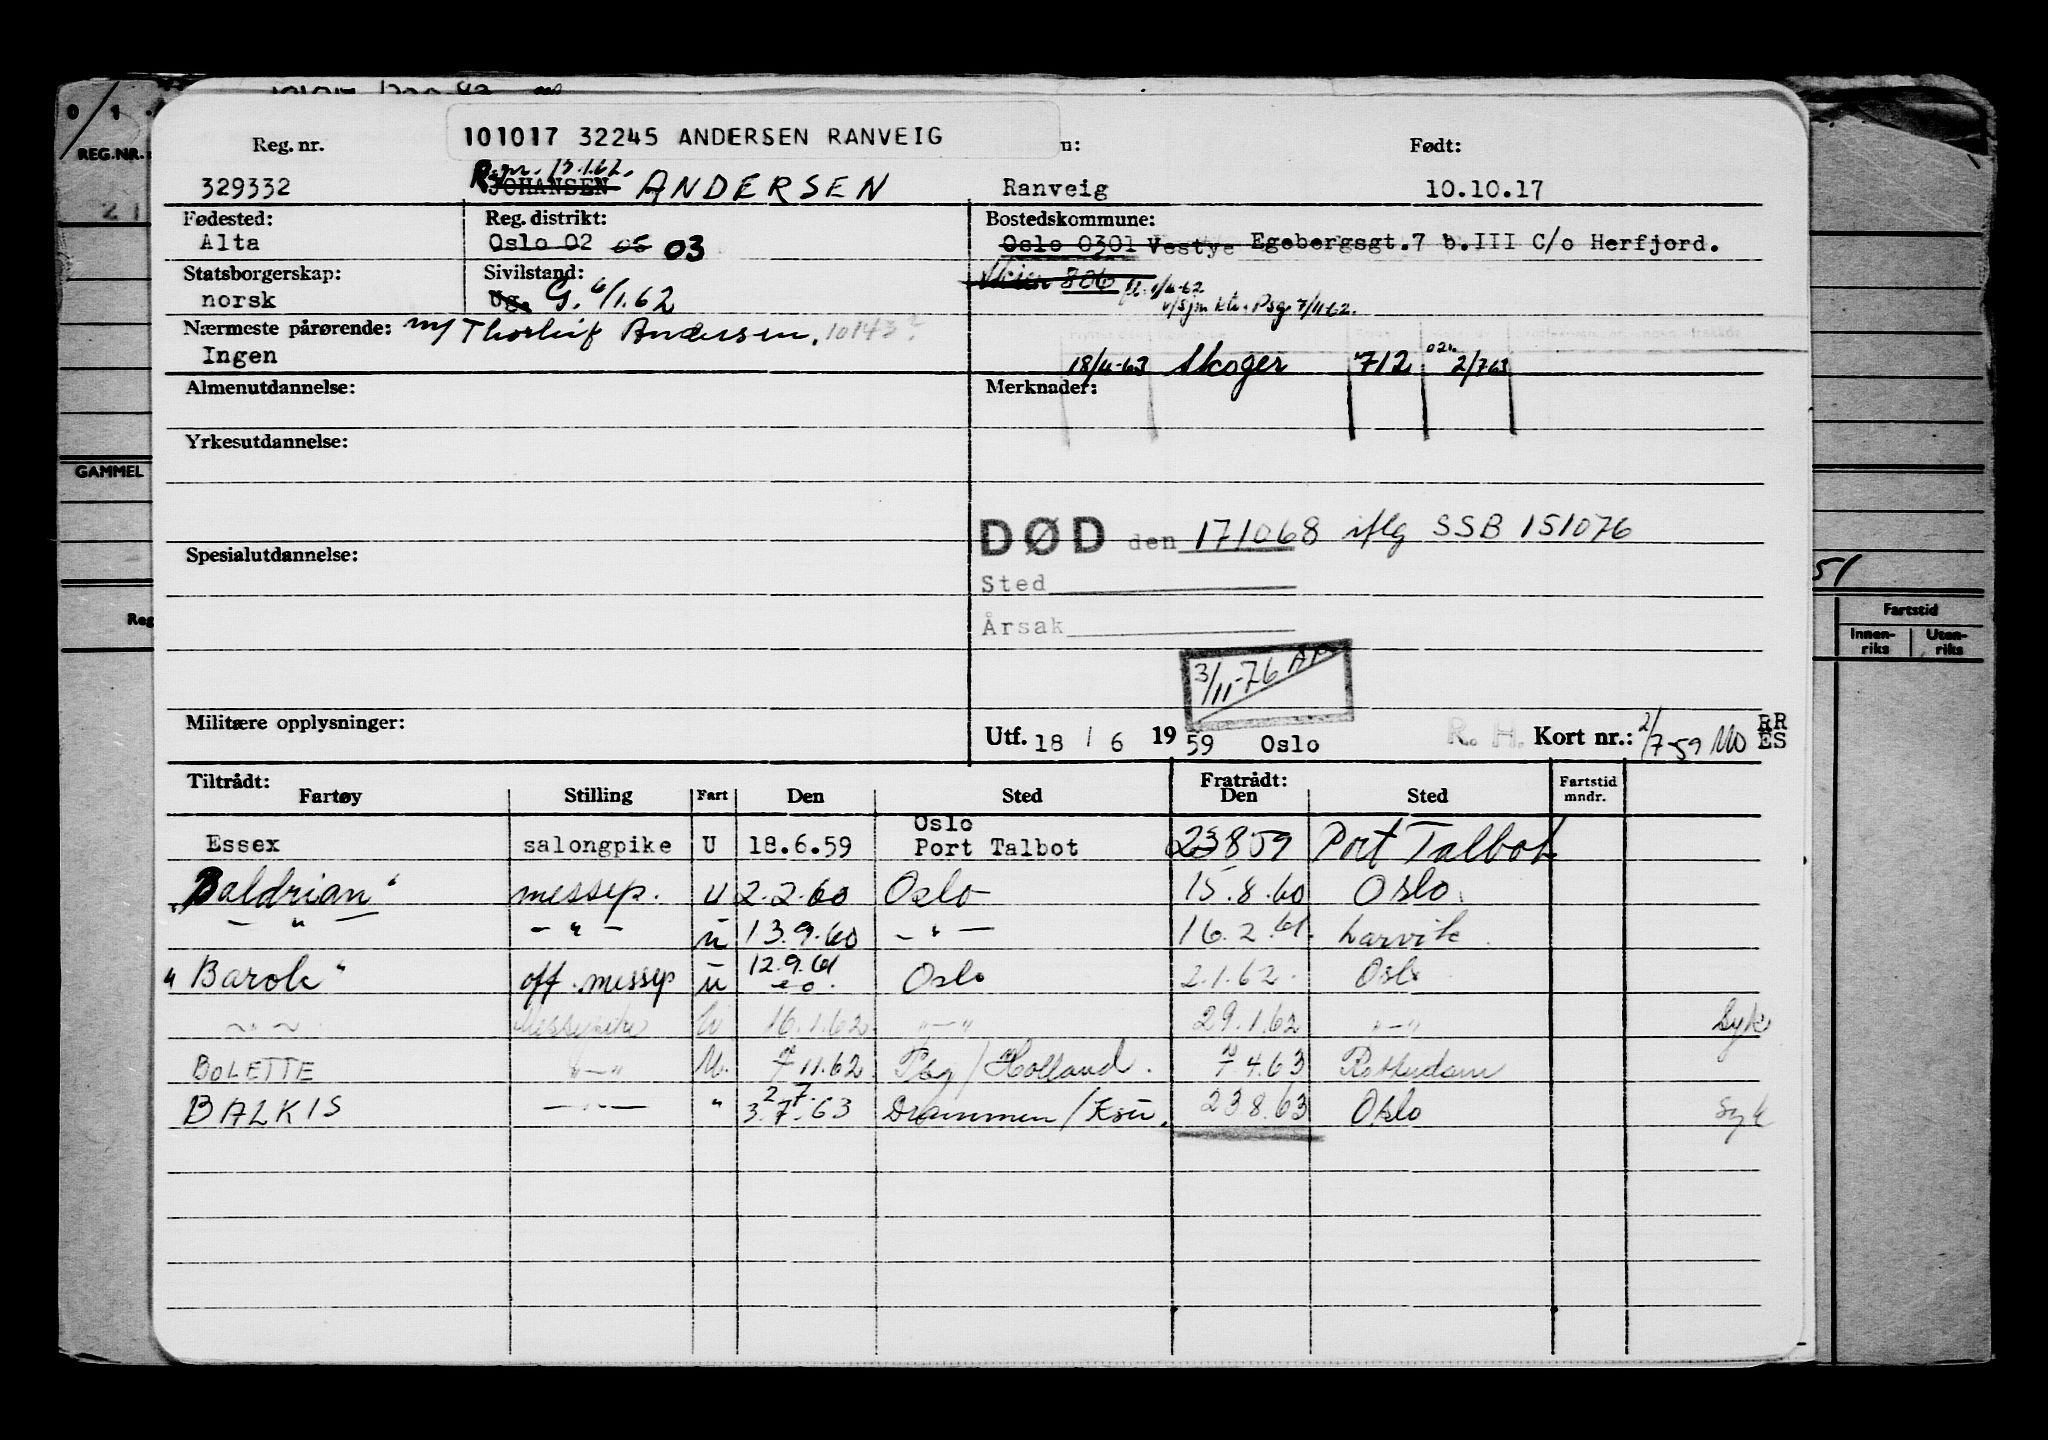 101017 32245 ANDERSEN RANVEIG
Reg. nr.
n:
Født:
329332
JOHANSEN ANDERSEN
Ranveig
10.10.17
Fødested:
Reg. distrikt:
Bostedskommune:
Alta
Oslo 02 05 03
Oslo 0301 Vestye Egebergsgt.7 b.III C/o Herfjord.
Statsborgerskap:
Sivilstand:
Skien 806
norsk
Ug. G. 6/1.62
7/11-62.
Nærmeste pårørende: m/ Thorleif Andersen. 10143?
Ingen
18/4-63 Skoger 712 2/763
Almenutdannelse:
Merknader:
Yrkesutdannelse:
DØD den 171068 iflg SSB 151076
Spesialutdannelse:
Sted
Årsak
3/11-76
Militære opplysninger:
Utf. 18 / 6 1959 Oslo
R. H. Kort nr.: 2/7-59 MO RR ES
Tiltrådt:
Fratrådt:
Fartøy Stilling Fart Den Sted Den Sted Fartstid mndr.
Essex salongpike U 18.6.59 Oslo Port Talbot 23859 Port Talbot
"Baldrian" messep. U 2.2.60 Oslo 15.8.60 Oslo.
— " — — " — u 13.9.60 — " — 16.2.61. Larvik.
"Barok" off. messep u 12.9.61 Oslo 2.1.62. Oslo
— " — Messepike U 16.1.62 " — " 29.1.62 " — " Syk
BOLETTE " — " U. 7.11.62 Psg/Holland. 7.4.63 Rotterdam
BALKIS — " — " 3.7.63 2 7. Drammen/Ksu. 23.8.63 Oslo Syk
REG.NR.:
GAMMEL
Reg
51
Fartstid
Innen-riks
Uten-riks